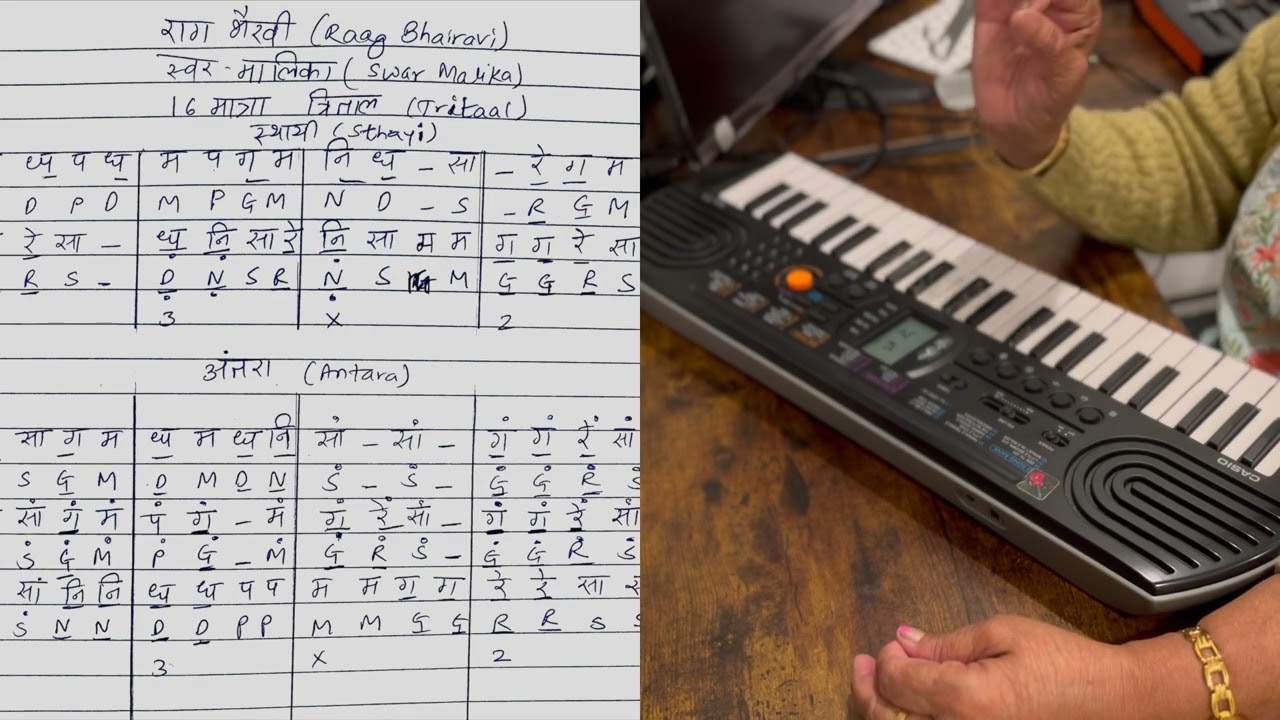 राग भैरवी (Raag Bhairavi)
स्वर-मालिका (Swar Malika)
16 मात्रा त्रिताल (Tritaal)
स्थायी (Sthayi)
ध॒ प ध॒ | म प ग॒ म | नि॒ ध॒ – सा | – रे॒ ग॒ म
D P D | M P G M | N D – S | – R̲ G̲ M
रे॒ सा – | ध़॒ नि़॒ सा रे॒ | नि़॒ सा म म | ग॒ ग॒ रे॒ सा
R̲ S – | Ḍ̲ Ṇ̲ S R̲ | Ṇ̲ S M | G̲ G̲ R̲ S
3 X 2
अंतरा (Antara)
सा ग॒ म | ध॒ म ध॒ नि॒ | सां – सां – | गं॒ गं॒ रें॒ सां
S G̲ M | D̲ M D̲ N̲ | Ṡ – Ṡ – | Ġ̲ Ġ̲ Ṙ̲ Ṡ
सां गं॒ मं | पं गं॒ – मं | गं॒ रें॒ सां – | गं॒ गं॒ रें॒ सां
Ṡ Ġ̲ Ṁ | Ṗ Ġ̲ – Ṁ | Ġ̲ Ṙ̲ Ṡ – | Ġ̲ Ġ̲ Ṙ̲ Ṡ
सां नि॒ नि॒ | ध॒ ध॒ प प | म म ग॒ ग॒ | रे॒ रे॒ सा
Ṡ N̲ N̲ | D̲ D̲ P P | M M G̲ G̲ | R̲ R̲ S S
3 X 2
CASIO